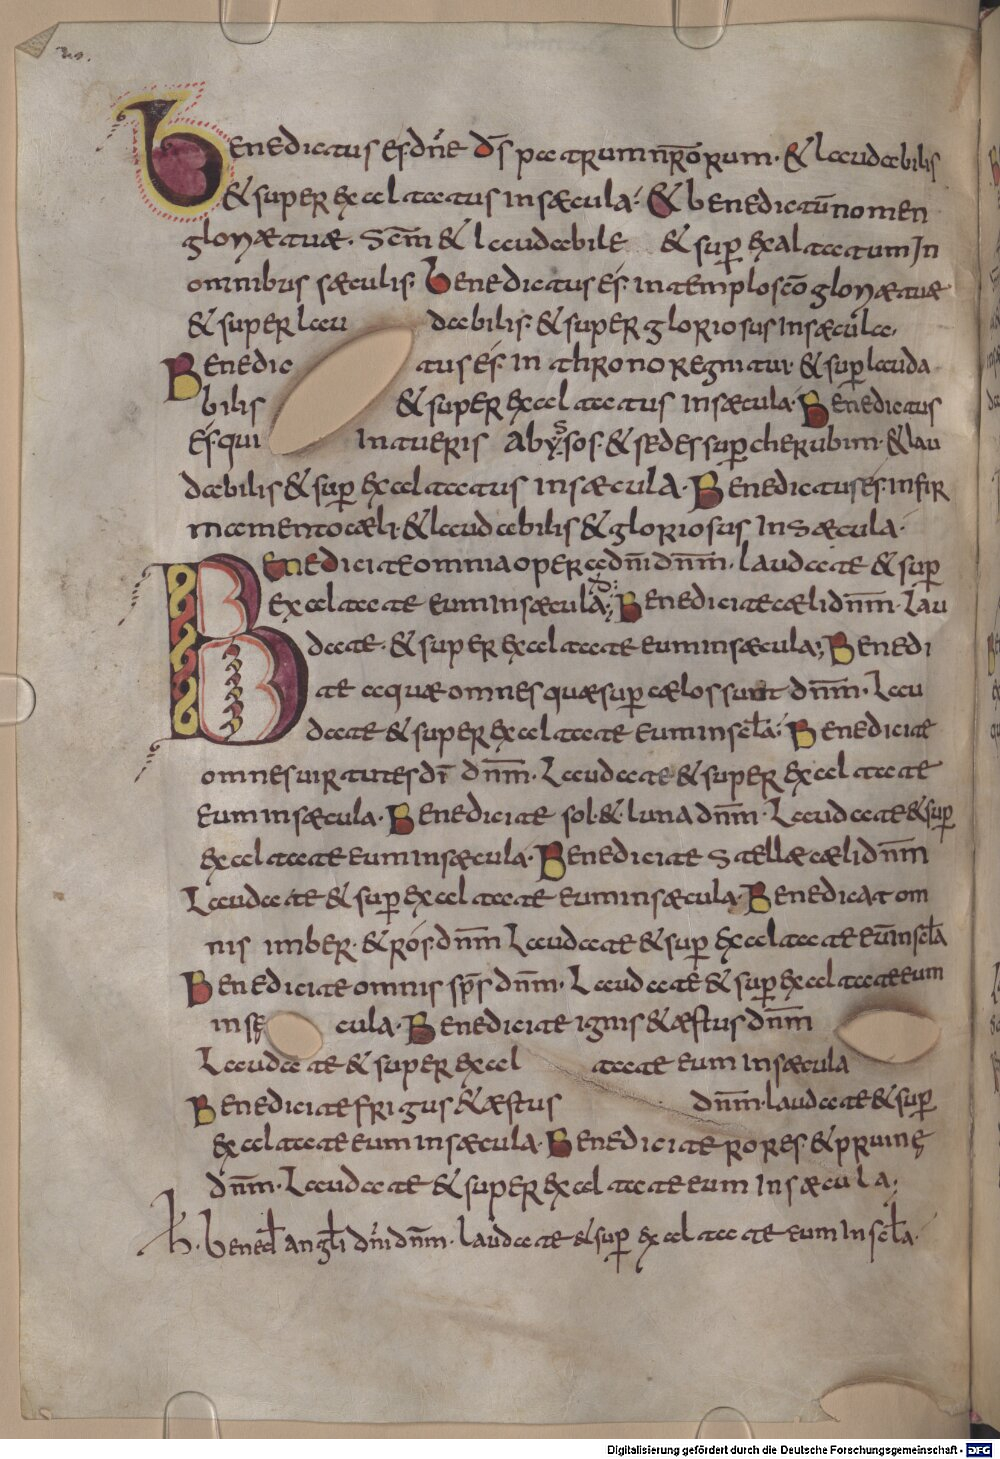 Benedictus es dn̄e ds̄ patrum nr̄orum · & laudabilis
& superexaltatus in sæcula · & benedictū nomen
gloriæ tuæ · sc̄m & laudabile & sup exaltatum In
omnibus sæculis · Benedictus es · in templo sc̄o gloriæ tuæ
& superlau dabilis · & supergloriosus In sæcula ·
Benedic tus es · in throno regni tui · & suplauda
bilis & superexaltatus in sæcula · Benedictus
es · qui Intueris abyssos · & sedes sup cherubim · & lau
dabilis & sup exaltatus in sæcula · Benedictus es · in fir
mamento cæli · & laudabilis & gloriosus In sæcula ·
Benedicite omnia opera dn̄i dn̄m · laudate & sup
exaltate eum In sæcula ; Benedicite cæli dn̄m · Lau
date · & superexaltate eum in sæcula ; Benedi
te aquæ omnes quæ sup cælos sunt dn̄m · Lau
date & superexaltate eum in scl̄a ; Benedicite
omnes uirtutes dī dn̄m · Laudate & superexaltate
eum in sæcula · Benedicite sol · & · luna dn̄m · Laudate & sup
exaltate eum In sæcula · Benedicite stellæ cæli dn̄m
Laudate & sup exaltate eum in sæcula · Benedicat om
nis imber · & ros · dn̄m Laudate & sup exaltate eū in scl̄a
Benedicite omnis sp̄s dn̄m · Laudate & sup exaltate eum
in sę cula · Benedicite ignis & æstus dn̄m
Laudate & superexal tate eum in sæcula
Benedicite frigus & æstus dn̄m · laudate & sup
exaltate eum in sæcula · Benedicite rores & pruinę
dn̄m · Laudate & superexaltate eum In sæcula ;
h · bened angl̄i dn̄i dn̄m · laudate & sup exaltate eum In scl̄a ·
Digitalisierung gefördert durch die Deutsche Forschungsgemeinschaft - DFG